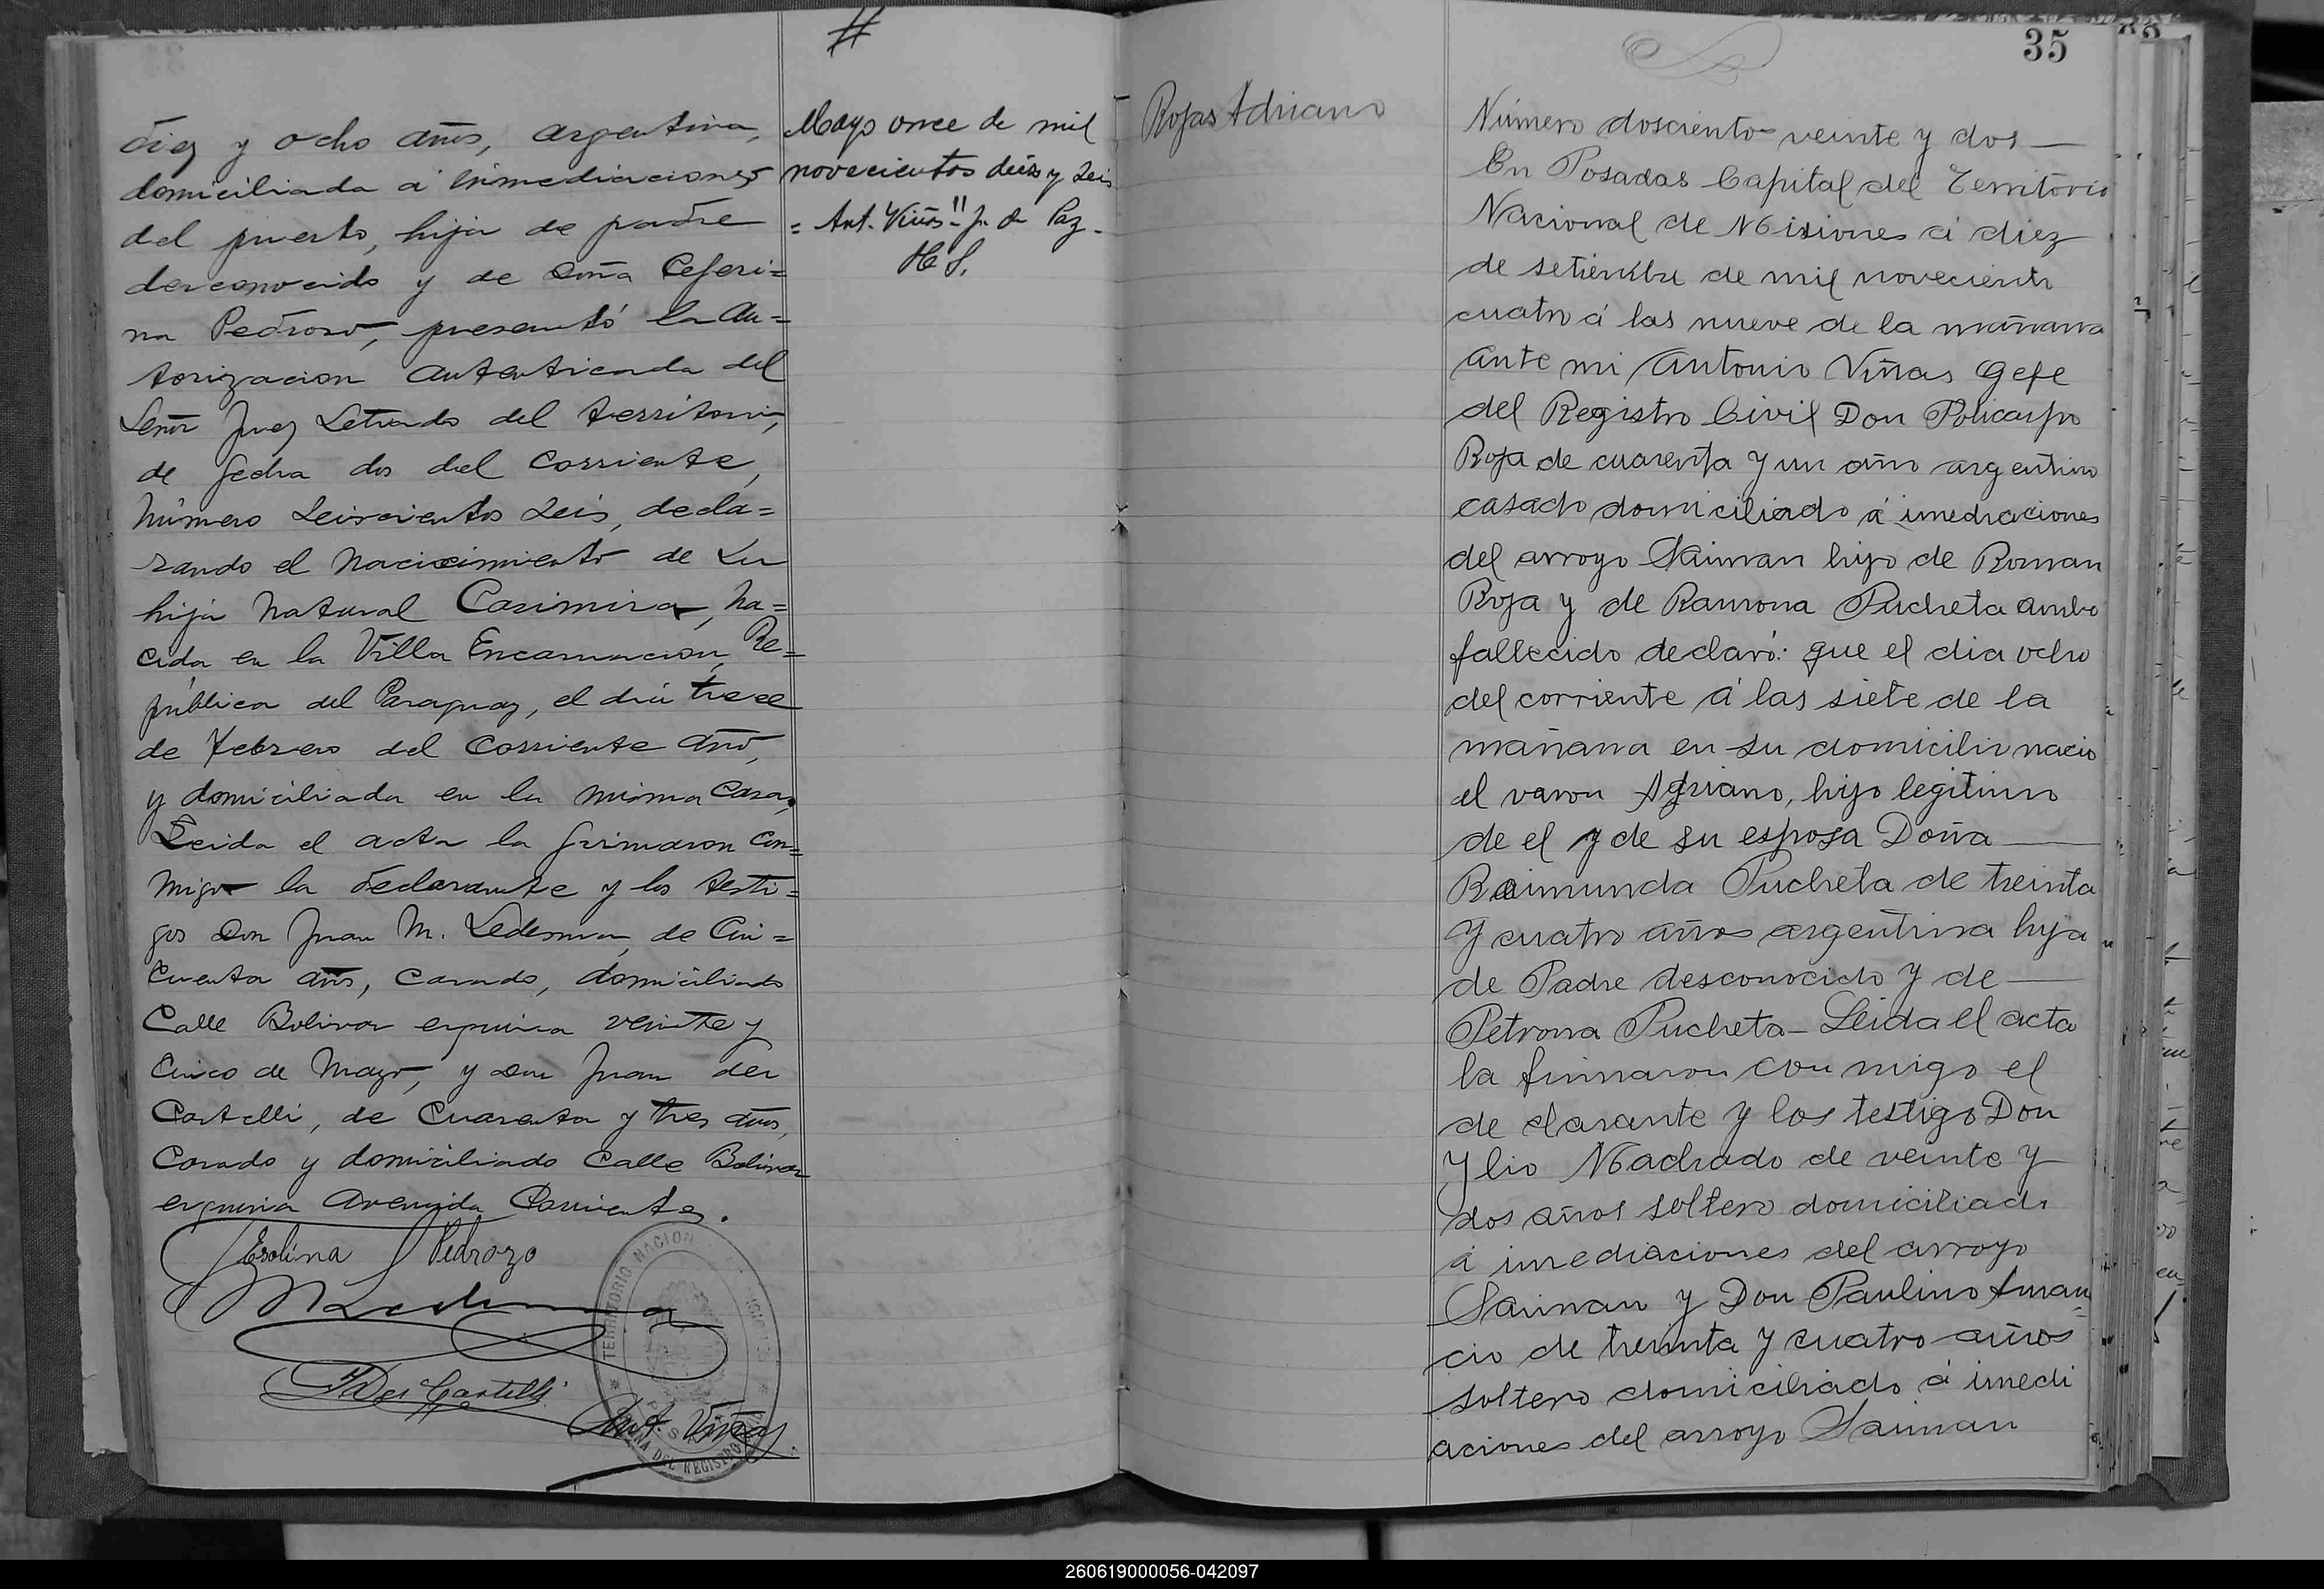 #
diez y ocho años, argentina,
domiciliada á inmediaciones
del puerto, hija de padre
desconocido y de doña Ceferi=
na Pedroso, presentó la au=
torizacion autenticada del
Señor Juez Letrado del territorio,
de fecha dos del corriente,
número seiscientos seis, decla=
rando el nacimiento de su
hija natural Casimira, na=
cida en la Villa Encarnacion, Re=
pública del Paraguay, el dia trece
de Febrero del corriente año,
y domiciliada en la misma casa.
Leida el acta la firmaron con=
migo la declarante y los testi=
gos Don Juan M. Ledesma, de cin=
cuenta años, casado, domiciliado
Calle Bolivar esquina veinte y
cinco de Mayo, y don Juan der
Castelli, de cuarenta y tres años,
casado y domiciliado calle Bolivar
esquina avenida Corrientes.
Pedrozo
Ant. Viñas
TERRITORIO NACION
DEL REGISTRO
Mayo once de mil
novecientos diéz y seis
= Ant. Viñas " J. de Paz -
Rojas Adriano
35
Número dosciento veinte y dos —
En Posadas Capital del Territorio
Nacional de Misiones á diez
de setiembre de mil noveciento
cuatro á las nueve de la mañana
ante mi Antonio Viñas Gefe
del Registro Civil Don Policarpo
Roja de cuarenta y un año argentino
casado domiciliado á imediaciones
del arroyo Saiman hijo de Roman
Roja y de Ramona Pucheta ambo
fallecido declaró: que el dia ocho
del corriente á las siete de la
mañana en su domicilio nacio
el varon Adriano, hijo legitimo
de el y de su esposa Doña —
Raimunda Pucheta de treinta
y cuatro años argentina hija
de Padre desconocido y de —
Petrona Pucheta - Leida el acta
la firmaron con migo el
de clarante y los testigo Don
Ylio Machado de veinte y
dos años soltero domiciliado
á imediaciones del arroyo
Saiman y Don Paulino Aman
cio de treinta y cuatro años
soltero domiciliado á imedi
aciones del arroyo Saiman
260619000056-042097